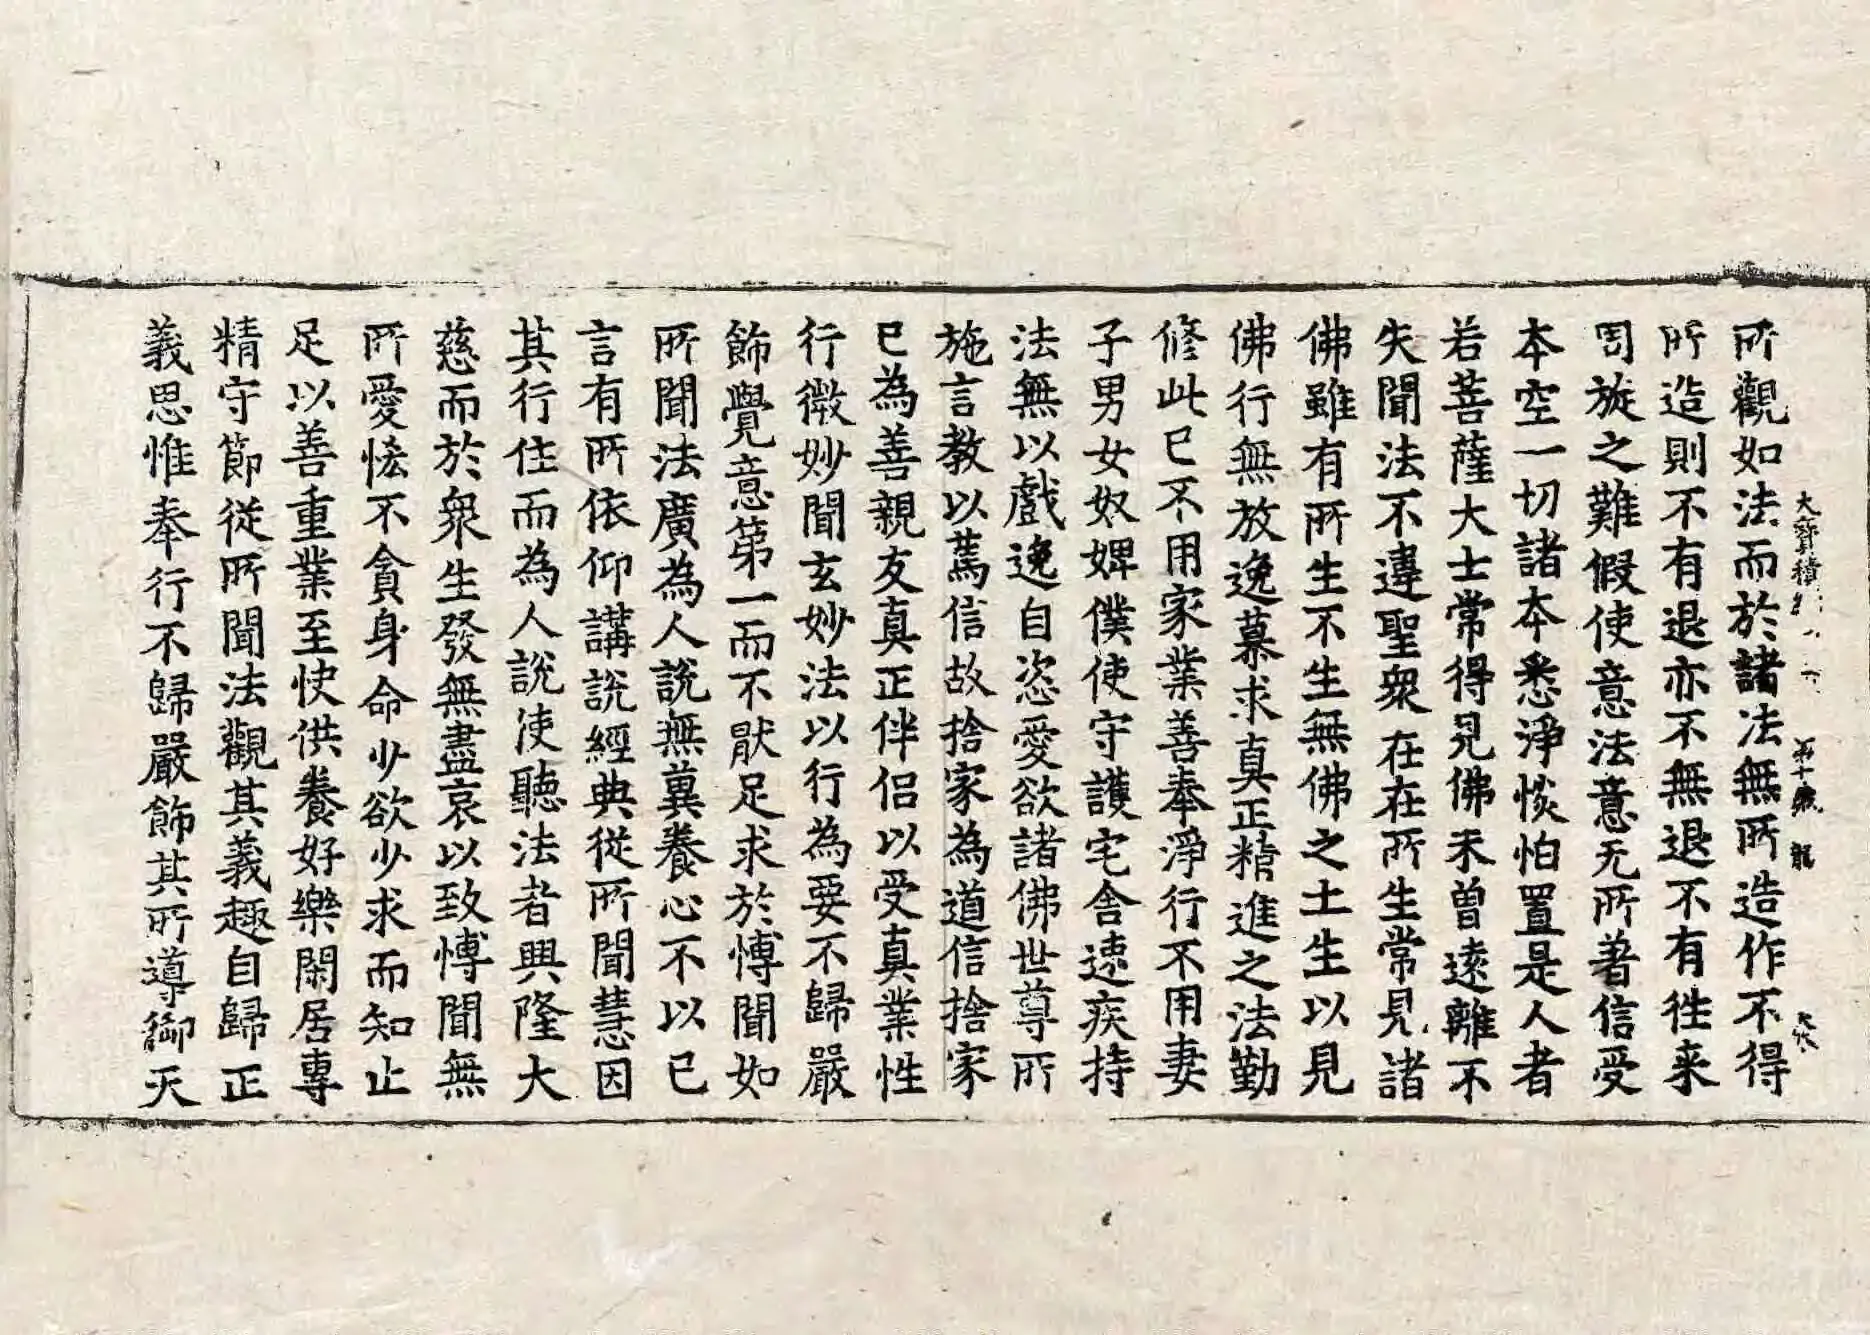 大寶積經
第十張 龍
所觀如法而於諸法無所造作不得
所造則不有退亦不無退不有徃来
周旋之難假使意法意无所著信受
本空一切諸本悉淨惔怕置是人者
若菩薩大士常得見佛未曾遠離不
失聞法不違聖衆在在所生常見諸
佛雖有所生不生無佛之土生以見
佛行無放逸慕求真正精進之法勤
修此已不用家業善奉淨行不用妻
子男女奴婢僕使守護宅舍速疾持
法無以戲逸自恣愛欲諸佛世尊所
施言教以篤信故捨家為道信捨家
已為善親友真正伴侣以受真業性
行微妙聞玄妙法以行為要不歸嚴
飾覺意第一而不猒足求於愽聞如
所聞法廣為人說無冀養心不以已
言有所依仰講說經典從所聞慧因
其行住而為人說使聽法者興隆大
慈而於衆生發無盡哀以致愽聞無
所愛恡不貪身命少欲少求而知止
足以善重業至快供養好樂閑居專
精守節從所聞法觀其義趣自歸正
義思惟奉行不歸嚴飾其所導御天